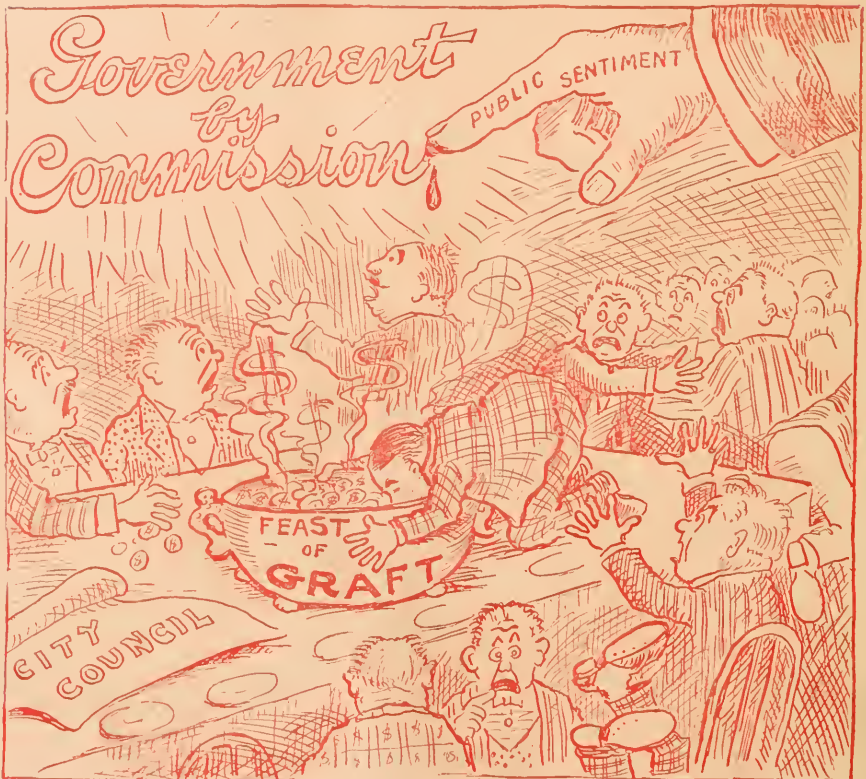 Government
by
Commission
PUBLIC SENTIMENT
FEAST
OF
GRAFT
CITY
COUNCIL